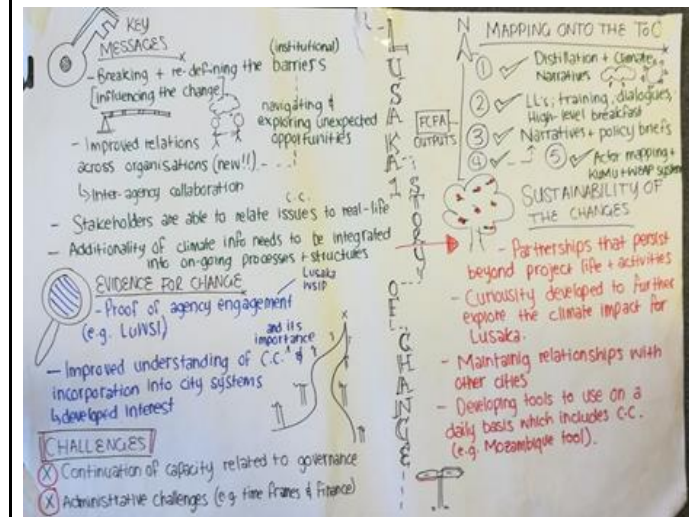 KEY
MESSAGES
(institutional)
- Breaking + re-defining the barriers
[influencing the change]
navigating &
exploring unexpected
opportunities
- Improved relations
across organisations (new!!)
↳ Inter-agency collaboration
C.C.
- Stakeholders are able to relate issues to real-life
- Additionality of climate info needs to be integrated
into on-going processes + structures
EVIDENCE FOR CHANGE
- Proof of agency engagement
(e.g. LuWSI)
Lusaka
WSIP
and its
importance
- Improved understanding of C.C. &
incorporation into city systems
↳ developed interest
CHALLENGES
X Continuation of capacity related to governance
X Administrative challenges (e.g time frames & Finance)
LUSAKA'S
STORY
OF
CHANGE
N
MAPPING ONTO THE ToC
FCFA
OUTPUTS
1 ✓ Distillation + Climate
Narratives
2 ✓ LL's; training, dialogues,
High-level breakfast
3 ✓ Narratives + policy briefs
4 ✓
5 ✓ Actor mapping +
KUMU + WEAP system
SUSTAINABILITY OF
THE CHANGES
- Partnerships that persist
beyond project life + activities
- Curiousity developed to further
explore the climate impact for
Lusaka.
- Maintainig relationships with
other cities
- Developing tools to use on a
daily basis which includes C.C.
(e.g. Mozambique tool).